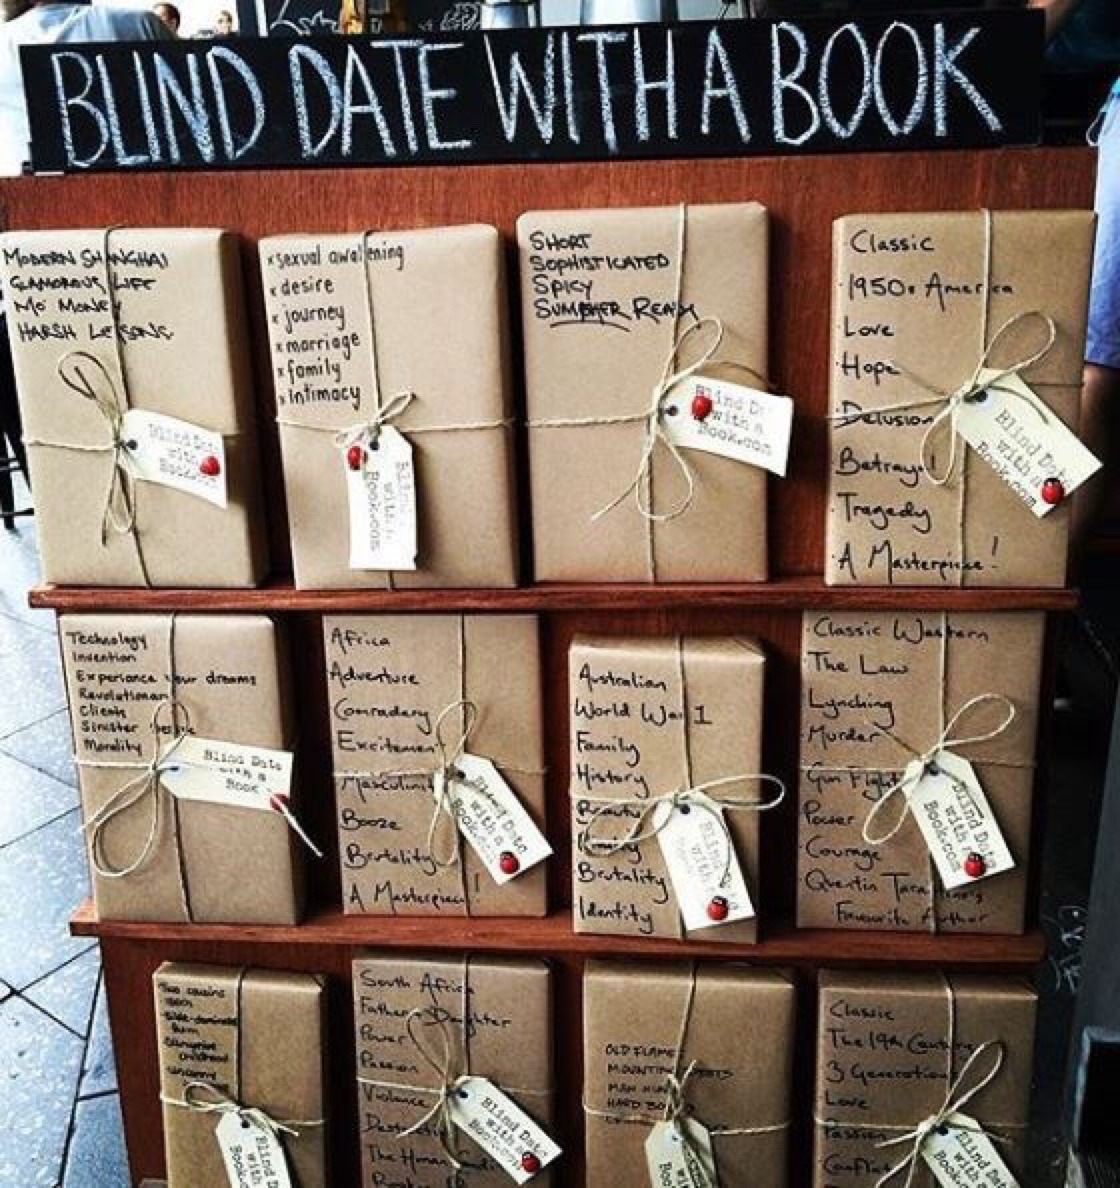 BLIND DATE WITH A BOOK
MODERN SHANGHAI
GLAMOROUS LIFE
MO MONEY
HARSH LESSONS
Blind Date
with a
Book.com
x sexual awakening
x desire
x journey
x marriage
x family
x Intimacy
Blind
with
Book.com
SHORT
SOPHISTICATED
SPICY
SUMMER READ
Blind Date
with a
Book.com
Classic
1950s America
Love
Hope
Delusion
Betrayal
Tragedy
A Masterpiece!
Blind Date
with a
Book.com
Technology
Invention
Experience your dreams
Revolutionary
Client
Sinister people
Morality
Blind Date
with a
Book
Africa
Adventure
Comradery
Excitement
Masculinity
Booze
Brutality
A Masterpiece!
Blind Date
with a
Book.com
Australian
World War 1
Family
History
Beauty
Brutality
Identity
Blind
with a
Classic Western
The Law
Lynching
Murder
Gun Fights
Power
Courage
Quentin Tarantino's
Favourite Author
Blind Date
with a
Book.com
Two cousins
childhood
Blind Date
with
Book
South Africa
Father Daughter
Power
Passion
Violence
The Human
Blind Date
with a
Book.com
OLD FLAME
MAN HUNT
Blind
with
Book
Classic
The 19th Century
3 Generations
Love
Passion
Conflict
Blind Date
with a
Book.com